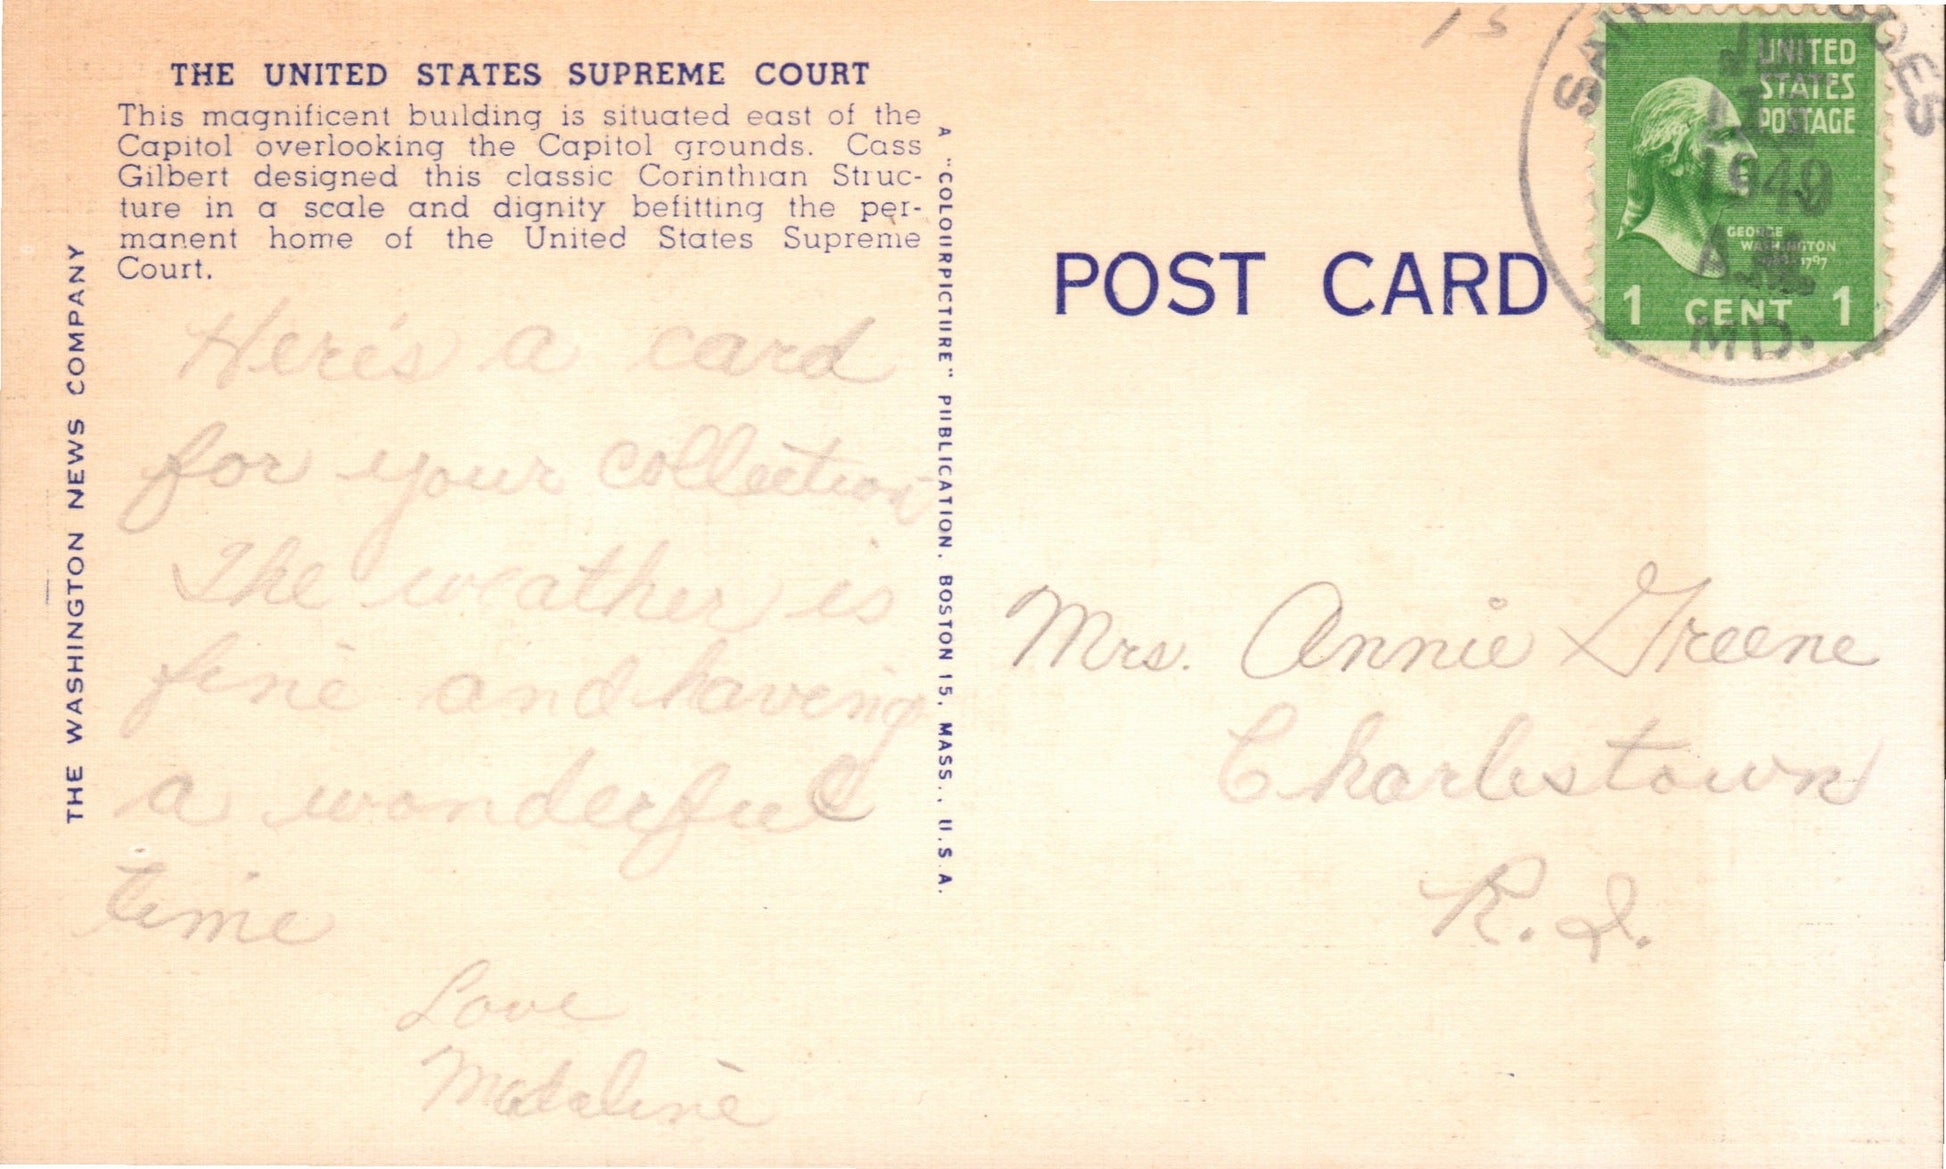 THE UNITED STATES SUPREME COURT
This magnificent building is situated east of the
Capitol overlooking the Capitol grounds. Cass
Gilbert designed this classic Corinthian Struc-
ture in a scale and dignity befitting the per-
manent home of the United States Supreme
Court.
Here's a card
for your collection
The weather is
fine and having
a wonderful
time
Love
Madaline
THE WASHINGTON NEWS COMPANY
A "COLOURPICTURE" PUBLICATION, BOSTON 15, MASS., U.S.A.
POST CARD
15
UNITED
STATES
POSTAGE
GEORGE
WASHINGTON
1 CENT 1
1949
MD.
Mrs. Annie Greene
Charlestown
R.I.